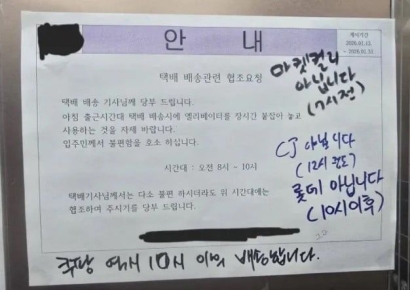 안 내
게시기간
택배 배송관련 협조요청
택배 배송 기사님께 당부 드립니다.
아침 출근시간대 택배 배송시에 엘리베이터를 장시간 붙잡아 놓고
사용하는 것을 자제 바랍니다.
입주민께서 불편함을 호소 하십니다.
시간대 : 오전 8시 ~ 10시
택배기사님께서는 다소 불편 하시더라도 위 시간대에는
협조하여 주시기를 당부 드립니다.
마켓컬리
아닙니다
(7시전)
CJ 아닙니다
(12시 권도)
롯데 아닙니다
(10시이후)
쿠팡 역시 10시 이의 배송합니다.